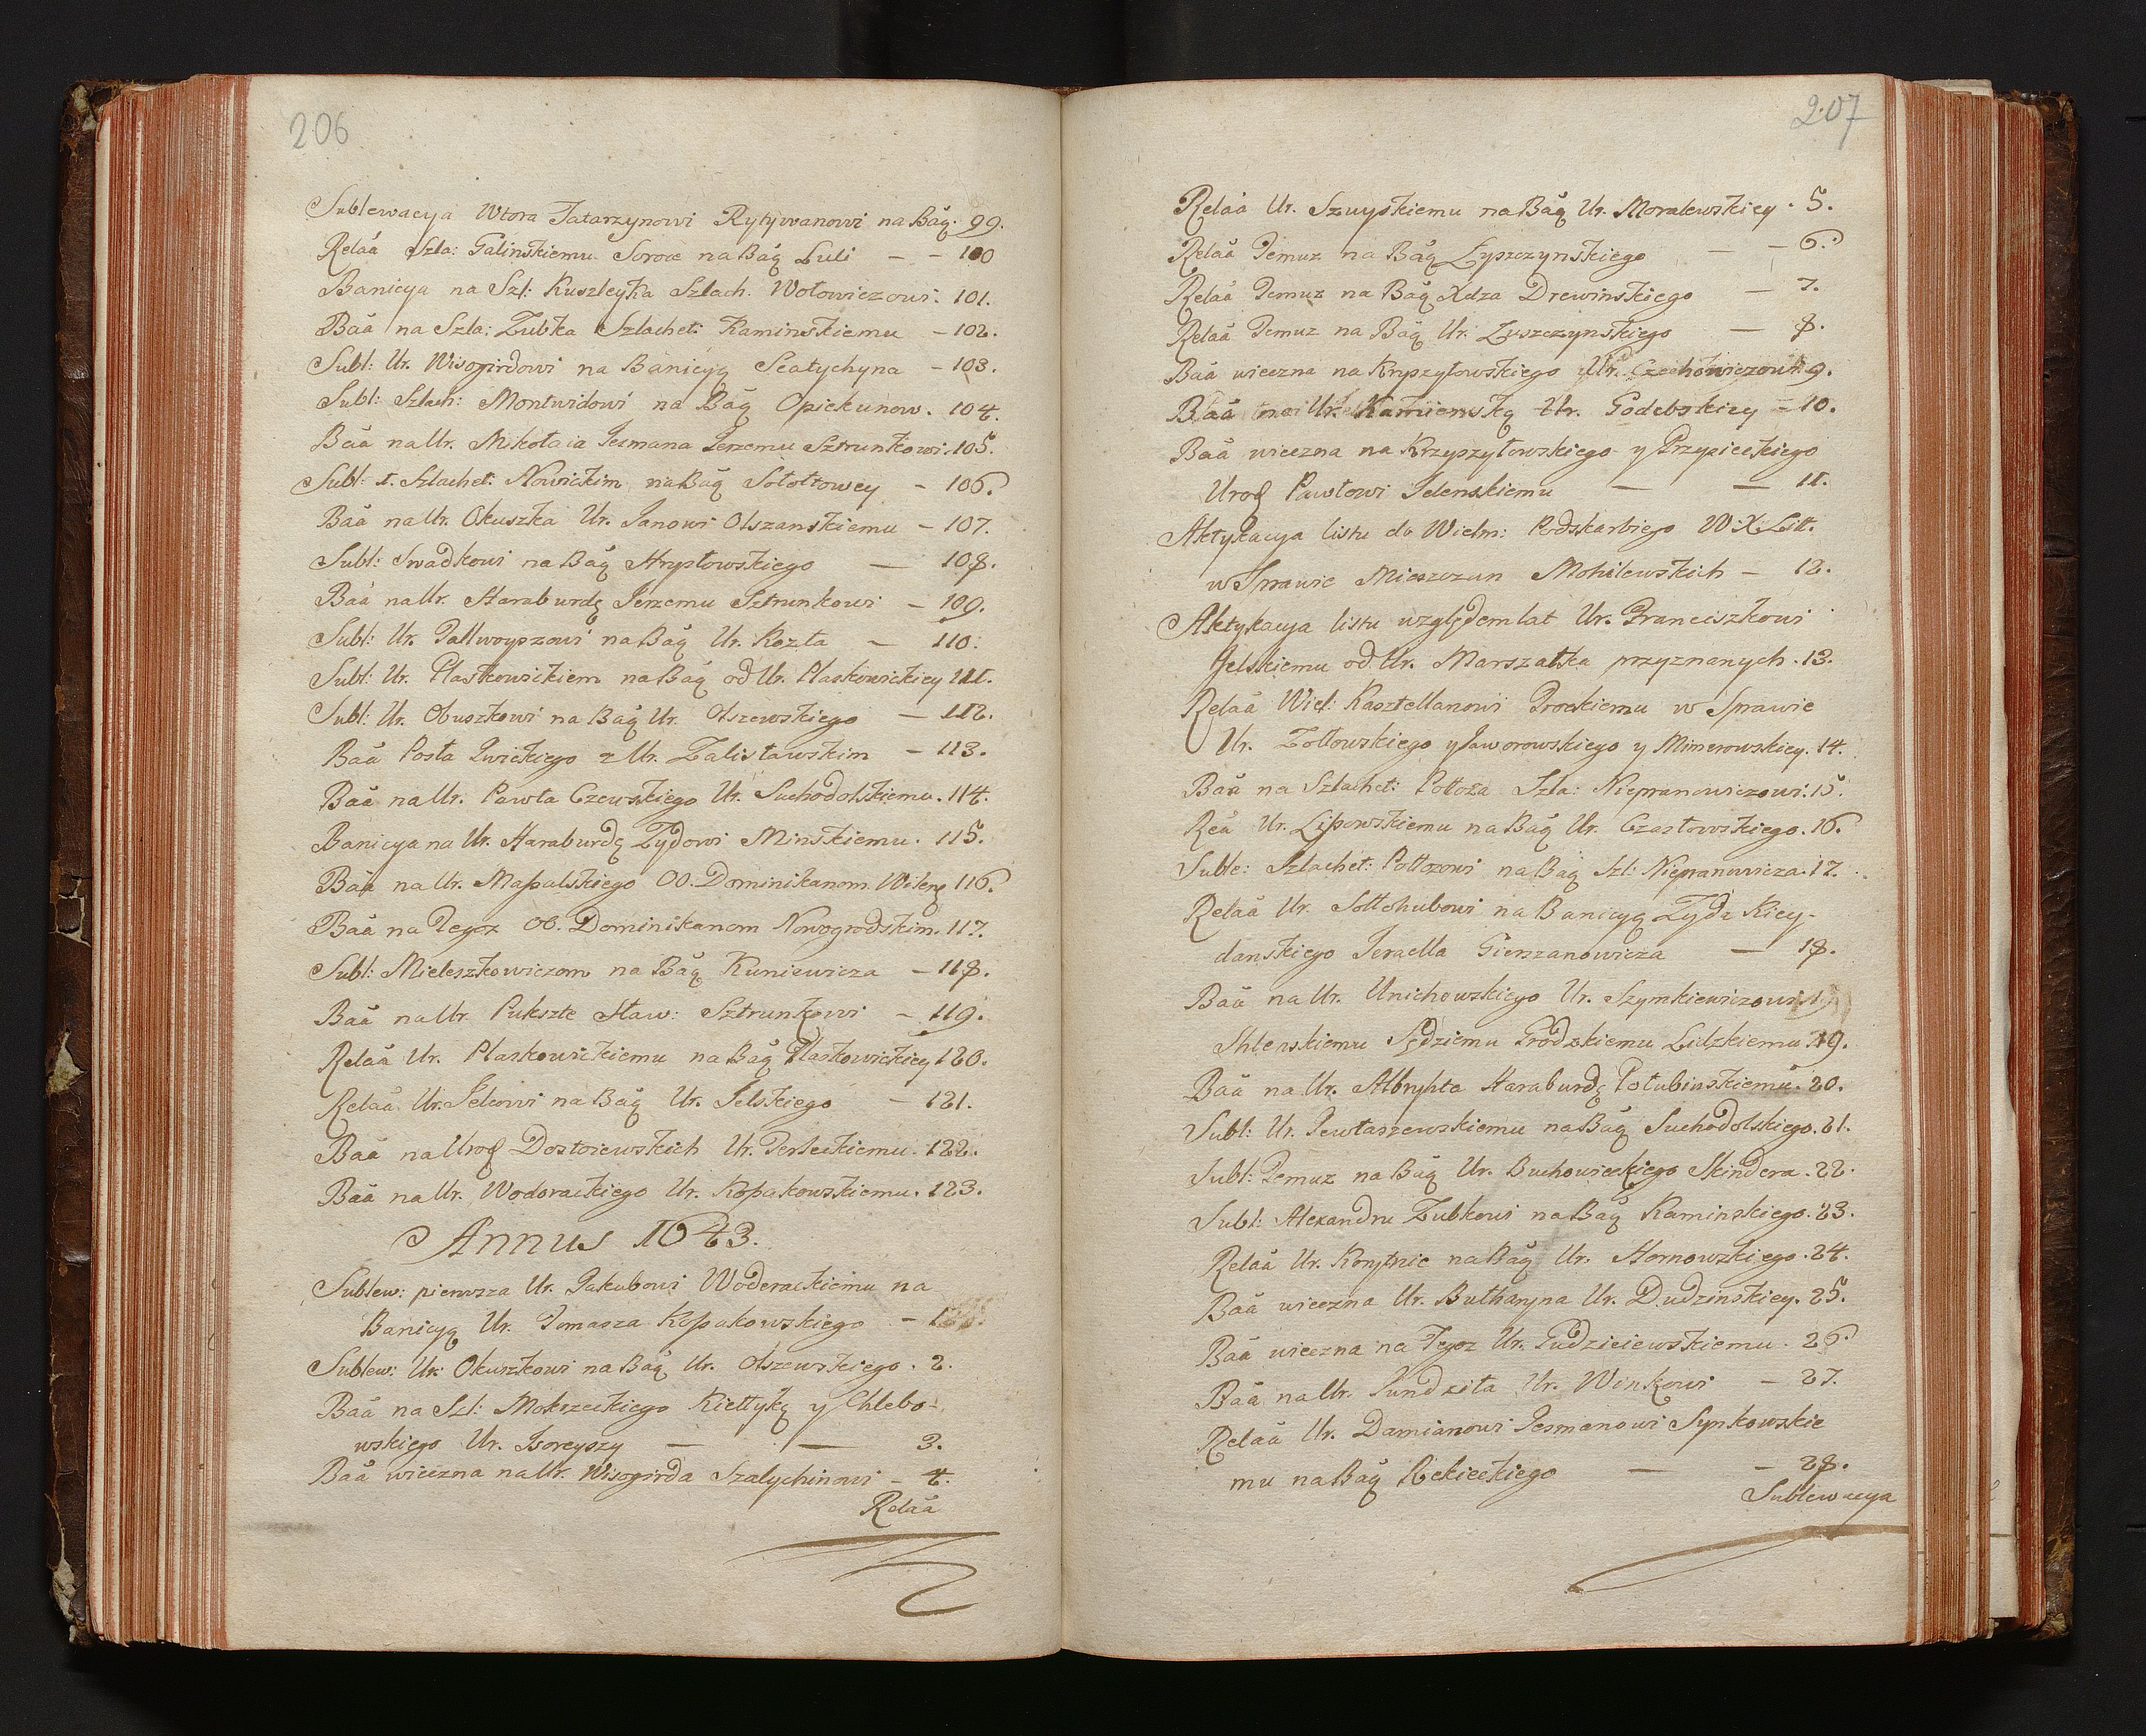 206
Sublewacya Wtora Tatarzynowi Rytywanowi na Bãą. 99.
Relãa Szla: Galinskiemu Soroce na Bãą Luli - - 100
Banicya na Szl: Kuszleyka Szlach. Wołowiczowi. 101.
Bãa na Szla: Zubka Szlachet: Kaminskiemu - 102.
Subl: Ur. Wisogirdowi na Banicyą Scatychyna - 103.
Subl: Szlach: Montwidowi na Bãą Opiekunow. 104.
Bãa na Ur. Mikołaia Jesmana Jerzemu Sztrunkowi. 105.
Subl: t. Szlachet: Nowickim na Bãą Sołołtowey - 106.
Bãa na Ur. Okuszka Ur. Janowi Olszanskiemu - 107.
Subl: Swadkowi na Bãą Hrysłowskiego — 108.
Bãa na Ur. Haraburdę Jerzemu Sztrunkowi - 109.
Subl: Ur. Pallwoyszowi na Bãą Ur. Kozła — 110.
Subl: Ur. Plaskowickiem na Bãą od Ur. Plaskowickiey 111.
Subl: Ur. Obuszkowi na Bãą Ur. Olszewskiego — 112.
Bãa Posła Zwickiego z Ur. Zalisławskim - 113.
Bãa na Ur. Pawła Czewskiego Ur. Suchodolskiemu. 114.
Banicya na Ur. Haraburdę Zydowi Minskiemu. 115.
Bãa na Ur. Massalskiego OO. Dominikanom Wilenę 116.
Bãa na Tegoz OO. Dominikanom Nowogrodskim. 117.
Subl: Mieleszkowiczom na Bãą Kuniewicza - 118.
Bãa na Ur. Pukszte Sław: Sztrunkowi - 119.
Relãa Ur. Plaskowickiemu na Bãą Plaskowickiey 120.
Relãa Ur. Jelcowi na Bãą Ur. Jelskiego - 121.
Bãa na Urod Dostoiewskich Ur. Terleckiemu. 122.
Bãa na Ur. Wodorackiego Ur. Kossakowskiemu. 123.
Annus 1643.
Sublew: pierwsza Ur. Jakubowi Woderackiemu na
Banicyą Ur. Tomasza Kossakowskiego - 1
Sublew: Ur. Okuszkowi na Bãą Ur. Olszewskiego. 2.
Bãa na Szl: Mokrzeckiego Kiełtykę y Chlebo-
wskiego Ur. Isoreyszy — — 3.
Bãa wieczna na Ur. Wisogirda Szalychinowi - 4.
Relãa
207
Relãa Ur. Szuyskiemu na Bãą Ur. Moralewskiey. 5.
Relãa Temuz na Bãą Łyszczynskiego — - 6.
Relãa Temuz na Bãą Xdza Drewinskiego — 7.
Relãa Temuz na Bãą Ur. Zuszczynskiego — 8.
Bãa wieczna na Kryszyłowskiego Ur. Czechowiczowi 9.
Bãa na Ur. Kamienską Ur. Godebskiey - 10.
Bãa wieczna na Krzyszyłowskiego y Przysieckiego
Urod Pawłowi Jelenskiemu — — 11.
Aktykacya listu do Wielm: Podskarbiego W. X. Litt.
w Sprawie Mieszczan Mohilewskich - 12.
Aktykacya listu względem lat Ur. Franciszkowi
Jelskiemu od Ur. Marszałka przyznanych. 13.
Relãa Wiel: Kasztellanowi Trockiemu w Sprawie
Ur. Zołłowskiego y Jaworowskiego y Mimerowskiey. 14.
Bãa na Szlachet: Połłoza Szla: Niepranowiczowi. 15.
Reã Ur. Lipowskiemu na Bãą Ur. Czasłowskiego. 16.
Suble: Szlachet: Połłozowi na Bãą Szl: Niepranowicza. 17.
Relãa Ur. Sołłohubowi na Banicyą Zyda Kiey-
danskiego Jeraella Gierszanowicza — 18.
Bãa na Ur. Unichowskiego Ur. Szymkiewiczowi
Shlenskiemu Sędziemu Grodzkiemu Lidzkiemu 19.
Bãa na Ur. Albryhta Haraburdę Połubinskiemu. 20.
Subl: Ur. Jewłaszewskiemu na Bãą Suchodolskiego. 21.
Subl: Temuz na Bãą Ur. Buchowieckiego Skindera. 22.
Subl: Alexandru Zubkowi na Bãą Kaminskiego. 23.
Relãa Ur. Korytnie na Bãą Ur. Hornowskiego. 24.
Bãa wieczna Ur. Butharyna Ur. Dudzinskiey. 25.
Bãa wieczna na Tegoz Ur. Gudzieiewskiemu. 26.
Bãa na Ur. Sundziła Ur. Winkowi - 27.
Relãa Ur. Damianowi Jesmanowi Synkowskie
mu na Bãą Rekieckiego — - 28.
Sublewacya